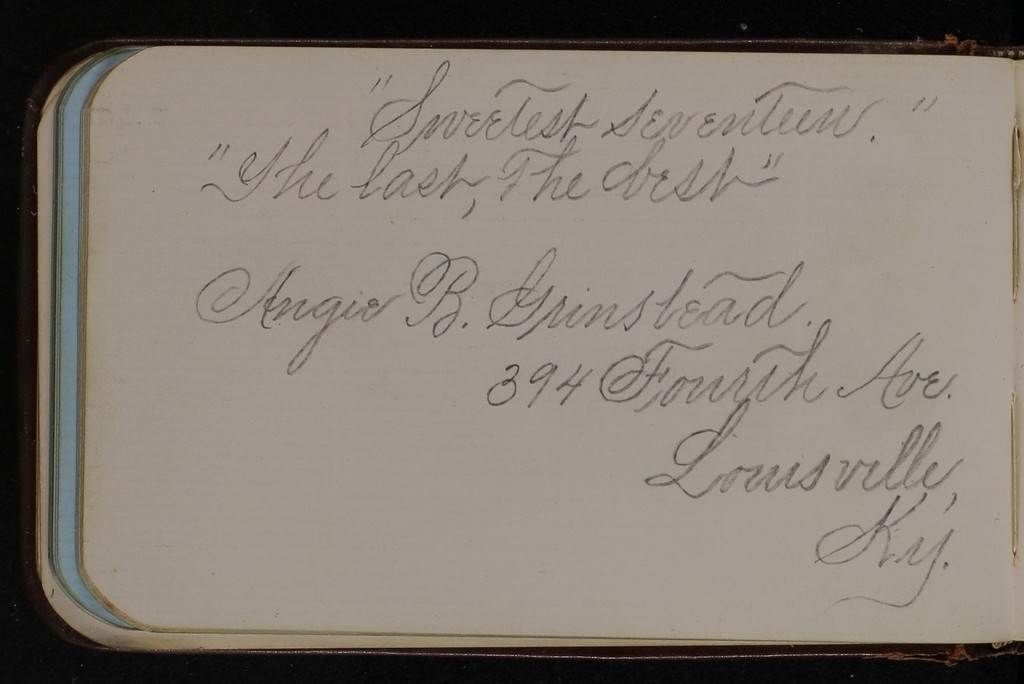 "Sweetest Seventeen."
"The last, The best"
Angie B. Grinstead.
394 Fourth Ave.
Louisville,
Ky.